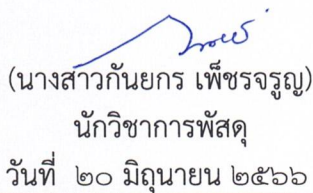 (นางสาวกันยกร เพ็ชรจรูญ)
นักวิชาการพัสดุ
วันที่ ๒๐ มิถุนายน ๒๕๖๖